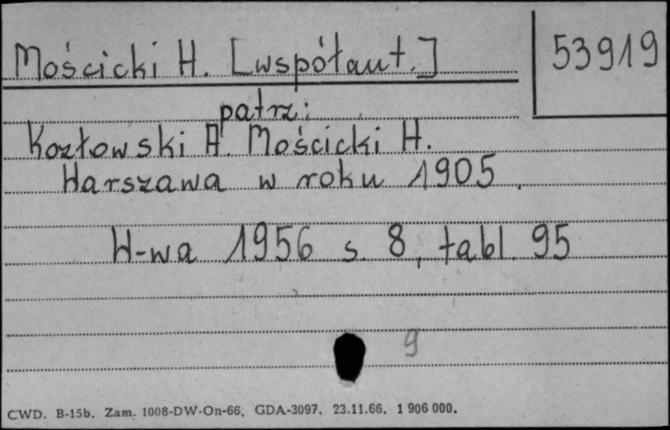 Mościcki H. [współaut.]
53919
patrz:
Kozłowski A. Mościcki H.
Warszawa w roku 1905.
W-wa 1956 s. 8, tabl. 95
9
CWD. B-15b. Zam. 1008-DW-On-66. GDA-3097. 23.11.66. 1 906 000.